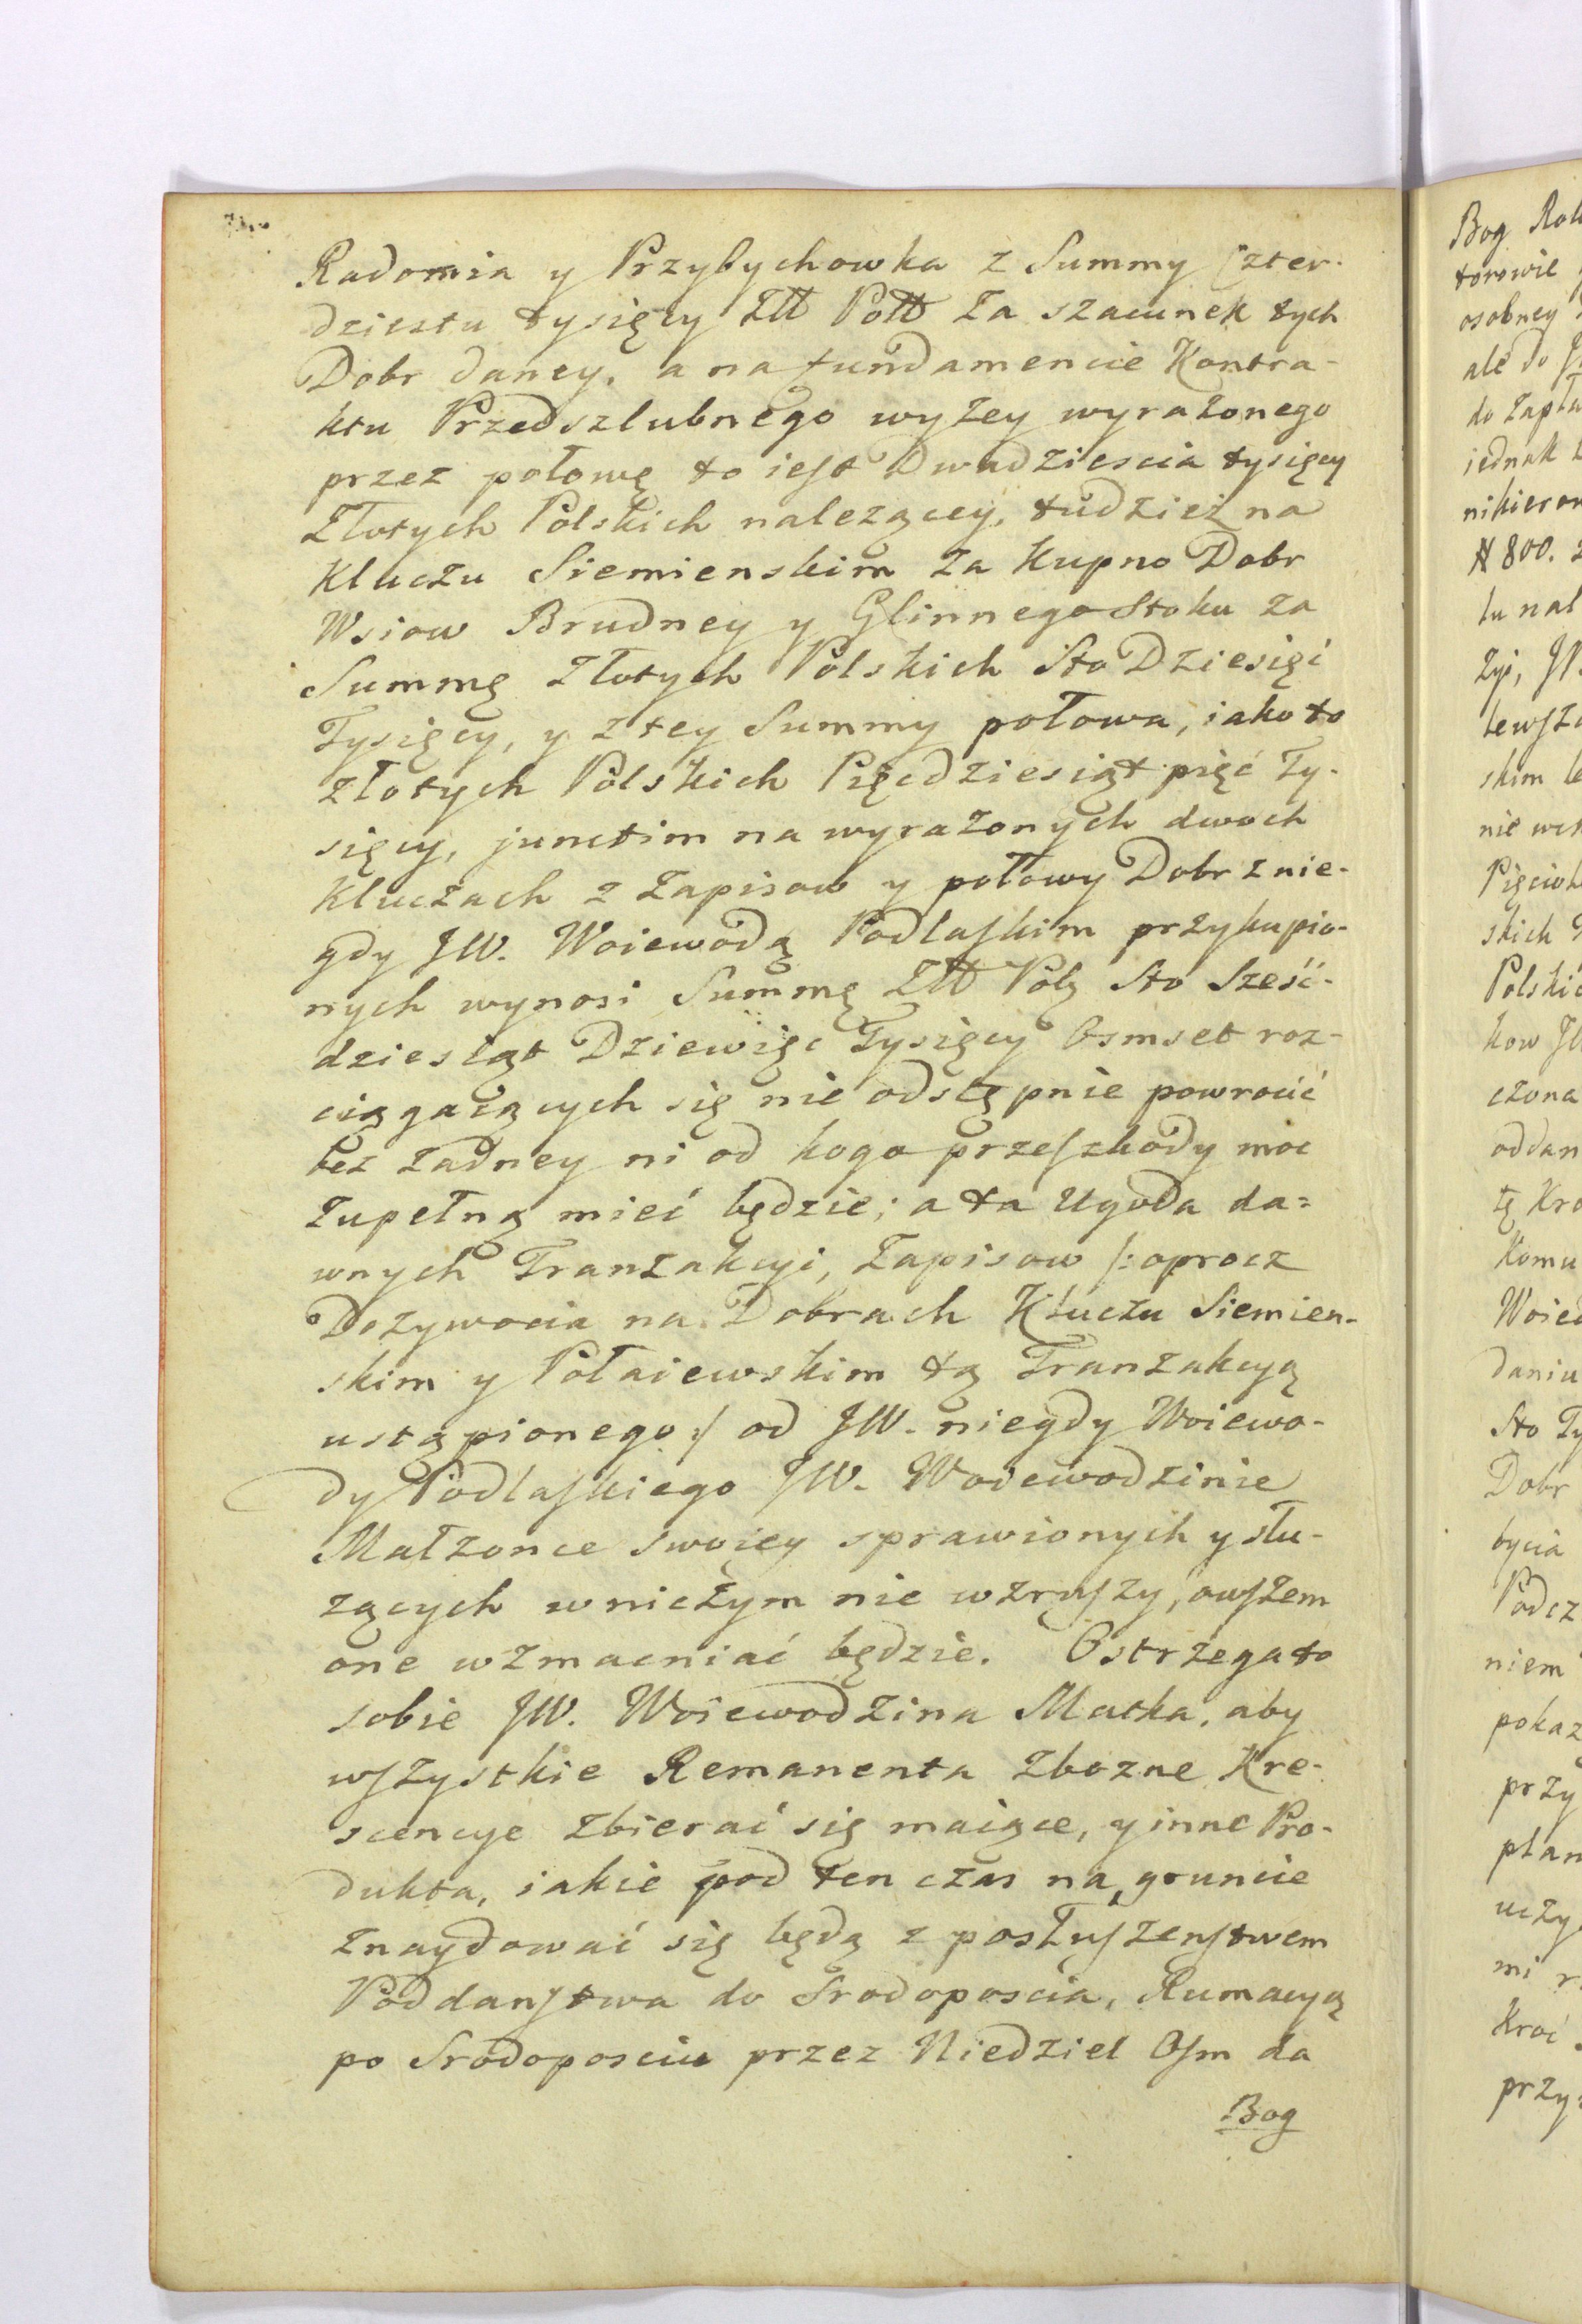 Radomia y Przybychowka z Summy Czter-
dziestu tysięcy Złł Połł Za szacunek tych
Dobr daney, a na fundamencie Kontra-
ktu Przedszlubnego wyżey wyrażonego
przez połowę to ieſt Dwadziescia tysięcy
Złotych Polskich należącey, tudzież na
Kluczu Siemienskim za Kupno Dobr
Wsiow Brudney y Glinnego Stoku za
Summę Złotych Polskich Sto Dziesięć
Tysięcy, y z tey Summy połowa, iako to
złotych Polskich Pięcdziesiąt pięć Ty-
sięcy, junctim na wyrażonych dwoch
Kluczach z Zapisow y połowy Dobr z nie-
gdy JW. Woiewodą Podlaſkim przykupio-
nych wynosi Summę Złł Polʒ Sto Sześć-
dziesiąt Dziewięc Tysięcy Osmset roz-
ciągaiących się nie odstępnie powrocić
bez żadney ni od kogo przeſzkody moc
zupełną mieć będzie; a ta Ugoda da=
wnych Tranzakcyi, Zapisow /: oprocz
Dożywocia na Dobrach Kluczu Siemien-
skim y Połaiewskim tą Tranzakcyą
ustąpionego :/ od JW. niegdy Woiewo-
dy Podlaſkiego JW. Woiewodzinie
Małżonce swoiey sprawionych y słu-
żących w niczym nie wzruſzy, owſzem
one wzmacniać będzie. Ostrzega to
sobie JW. Woiewodzina Matka, aby
wſzystkie Remanenta zbozne Kre-
scencye zbierać się maiące, y inne Pro-
dukta, iakie pod ten czas na gruncie
znaydować się będą z posłuſzeńſtwem
Poddanſtwa do Srodoposcia, Rumacyą
po Srodoposciu przez Niedziel Oſm da
Bog

Bog
torowie
osobney
ale do
do Zapła
iednak
nikieron
# 800.
tu nal
Zyi, JW
tewſz
skim
nie
Pięciok
skich
Polskic
kow JW
czona
oddan
tę Kro
Komu
Woiew
daniu
Sto Ty
Dobr
bycia
Podcz
niem
pokaz
przy
plan
uczy
mi
Kroć
przy